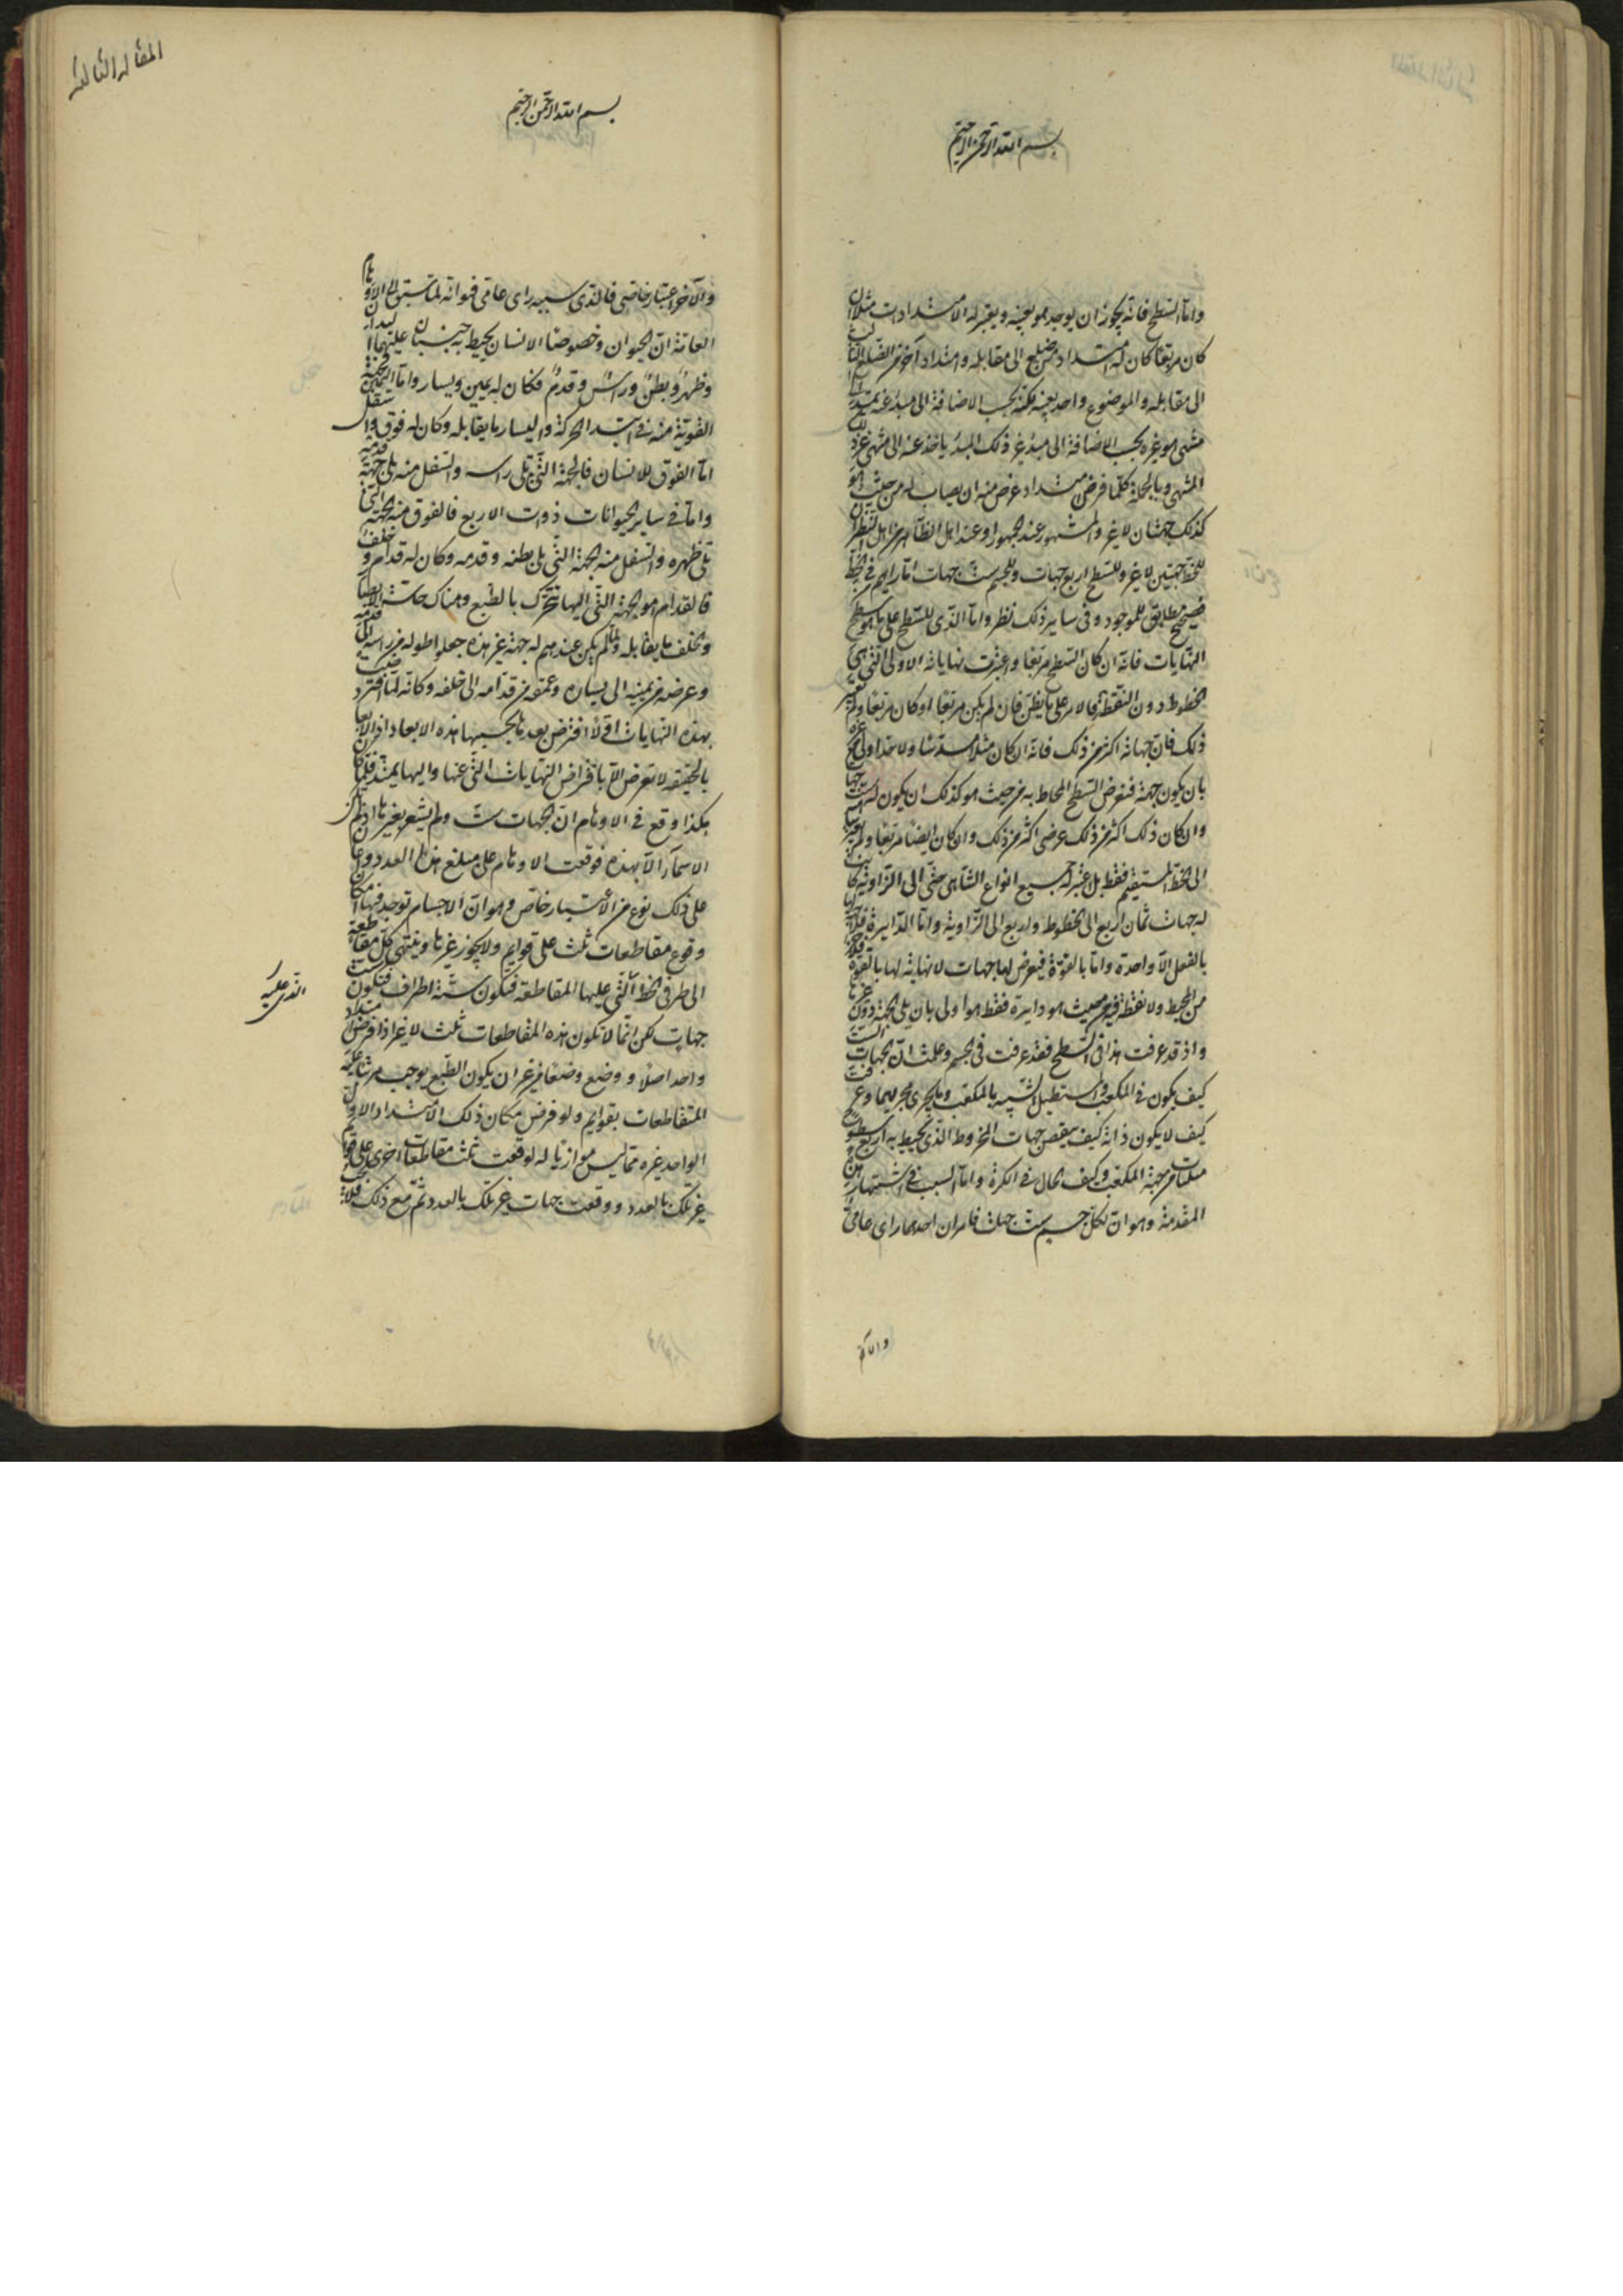 بسم الله الرحمن الرحيم
واما السطح فانه يجوز ان يوجد هو بعينه ويعتبر له الامتدادات مثلا ان
كان مربعا كان له امتداد من ضلع الى مقابله وامتداد آخر من الضلع الثالث
الى مقابله والموضوع واحد بعينه لكنه بحسب الاضافة الى مبدء عنه يمتد الى
منتهى هو غيره بحسب الاضافة الى مبدء غير ذلك المبدء ياخذ عنه الى منتهى غير ذلك
المنتهى وبالجملة كلما فرض امتداد عرض منه ان يصاب له من حيث هو
كذلك جهتان لا غير والمشهور عند الجمهور او عند اهل الظاهر من اهل النظر ان
للخط جهتين لا غير وللسطح اربع جهات وللجسم ست جهات اما رايهم في الخط
فصحيح مطابق للموجود وفي ساير ذلك نظر واما الذي للسطح على ما هو سطح
النهايات فانه ان كان السطح مربعا واعتبرت نهاياته الاولى التي هي
الخطوط دون النقط فالامر على ما يظن فان لم يكن مربعا او كان مربعا ولم يعتبر
ذلك فان جهاته اكثر من ذلك فانه ان كان مثلا مسدسا ولا حد اولى من غيره
بان يكون جهة فتعرض السطح المحاط به من حيث هو كذلك ان يكون له ست جهات
وان كان ذلك اكثر من ذلك عرض اكثر من ذلك وان كان ايضا مربعا ولم يعتبر انتهاؤه
الى الخط المستقيم فقط بل اعتبر له جميع انواع التناهى حتى الى الزاوية كان
له جهات ثمان اربع الى الخطوط واربع الى الزاوية واما الدايرة فلا جهة لها
بالفعل الا واحدة واما بالقوة فيعرض لها جهات لا نهاية لها بالقوة
من المحيط ولا نقطة فيه من حيث هو دايرة فقط هو اولى بان يلى الجهة دون غيرها
واذ قد عرفت هذا في السطح فقد عرفت في الجسم وعلمت ان الجهات الست
كيف يكون في المكعب والمستطيل الشبيه بالمكعب وما يجرى مجريهما وعرفت
كيف لا يكون ذاته كيف ينقص جهات المخروط الذي يحيط به اربع سطوح
مثلثات من جهة المكعب وكيف الحال في الكرة واما السبب في اشتهار هذه
المقدمة وهو ان لكل جسم ست جهات فامران احدهما راى عامى
والآخر
المقالة الثالثة
بسم الله الرحمن الرحيم
والآخر اعتبار خاصى فالذى سببه راى عامى فهو انه لما سبق الى الاوهام
العامة ان الحيوان وخصوصا الانسان يحيط به جنبتان عليهما اليدان
وظهر وبطن وراس وقدم فكان له يمين ويسار واما اليمين فالجهة
القوية منه في ابتداء الحركة واليسار ما يقابله وكان له فوق واسفل
اما الفوق للانسان فالجهة التى تلى راسه والسفل منه يلى جهة قدميه
واما في ساير الحيوانات ذوات الاربع فالفوق منه الجهة التى
تلى ظهره والسفل منه الجهة التى يلى بطنه وقدمه وكان له قدام وخلف
فالقدام هو الجهة التى اليها يتحرك بالطبع وهناك حاسة الابصار
والخلف ما يقابله ولما لم يكن عندهم له جهة غير هذه جعلوا طوله من راسه الى قدمه
وعرضه من يمينه الى يساره وعمقه من قدامه الى خلفه وكانه لما افترضت
بهذه النهايات اولا افترض بعد ما يحسبها هذه الابعاد اذ الابعاد
بالحقيقة لا تعرض الا بافتراض النهايات التى عنها واليها يمتد فلما كان
هكذا وقع في الاوهام ان الجهات ست ولم يشعر بغيرها اذ لم تكن
الاسماء الا بهذه فوقعت الاوهام على مبلغ هذا العدد واعان
على ذلك نوع من الاعتبار خاص وهو ان الاجسام توجد فيها امكان
وقوع مقاطعات ثلث على قوايم ولا يجوز غيرها وينتهى كل مقاطعة
الى طرفى الخط التى عليها المقاطعة فيكون ستة اطراف فيكون ست
جهات لكن انما لا تكون هذه المقاطعات ثلث لا غير اذا فرض امتداد
واحد اصلا ووضع وضعا من غير ان يكون الطبع يوجب مرتبا عليه
المتقاطعات بقوايم ولو فرض مكان ذلك الامتداد الاول
الواحد غيره مما ليس موازيا له لوقعت ثلث مقاطعات اخرى على قوايم
غير تلك بالعدد ووقعت جهات غير تلك بالعدد ثم مع ذلك فلا
الذى عليه